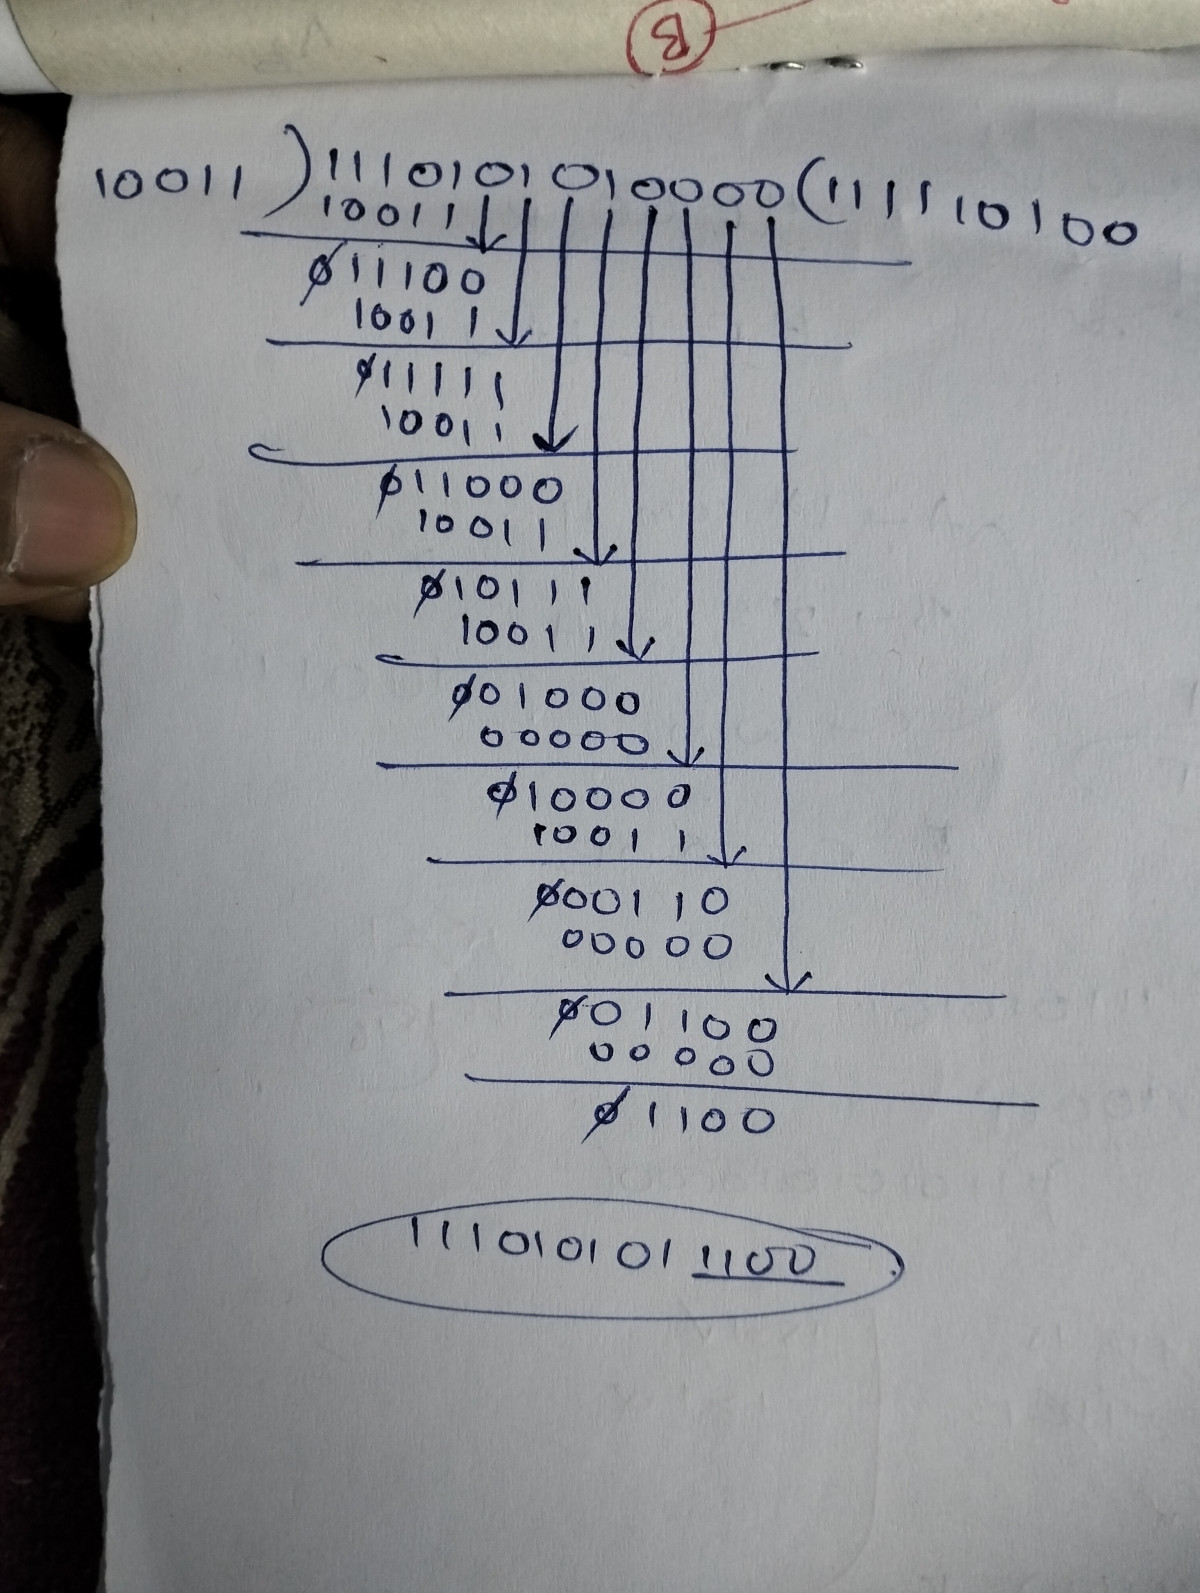 B
10011 ) 1110101010000 ( 111110100
10011
011100
10011
011111
10011
011000
10011
010111
10011
001000
00000
010000
10011
000110
00000
001100
00000
01100
111010101 1100